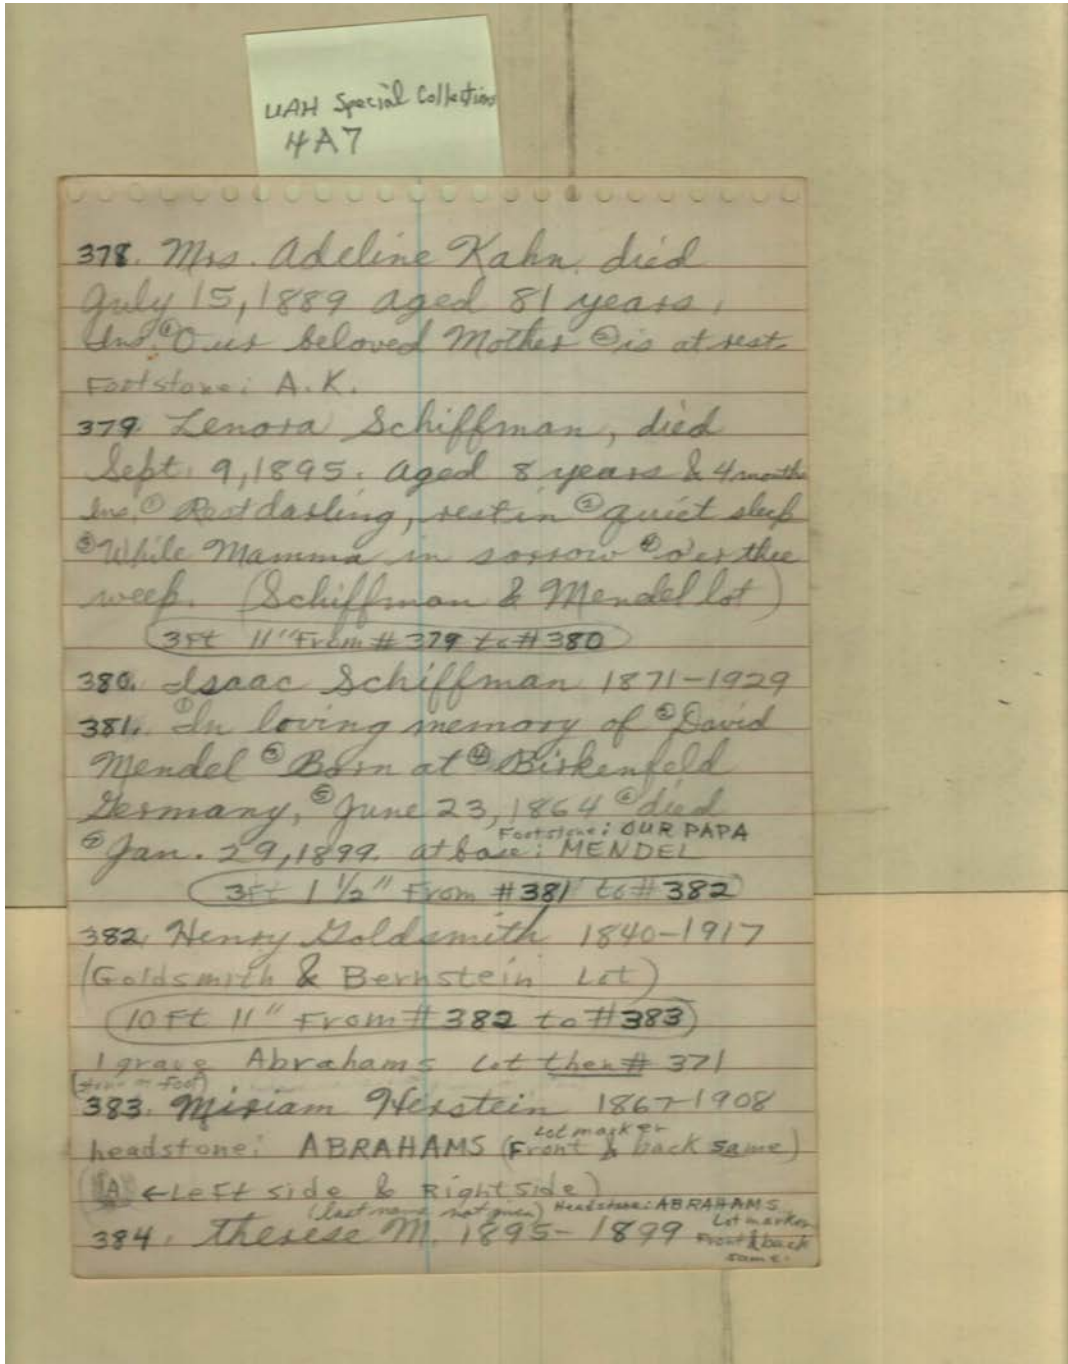 UAH Special Collections
4A7
378. Mrs. Adeline Kahn, died
July 15, 1889 aged 81 years,
Ins. ① Our beloved Mother ② is at rest.
Footstone: A.K.
379. Lenora Schiffman, died
Sept. 9, 1895. aged 8 years & 4 months
Ins. ① Rest darling, rest in ② quiet sleep
③ While Mamma in sorrow ④ o'er thee
weep. (Schiffman & Mendel lot)
3 Ft 11" From # 379 to # 380
380. Isaac Schiffman 1871-1929
381. ① In loving memory of ② David
Mendel ③ Born at ④ Birkenfeld
Germany, ⑤ June 23, 1864 ⑥ died
Footstone: OUR PAPA
⑦ Jan. 29, 1899. at base: MENDEL
3 Ft 1 1/2" From # 381 to # 382
382. Henry Goldsmith 1840-1917
(Goldsmith & Bernstein Lot)
10 Ft 11" From # 382 to # 383
1 grave Abrahams Lot then # 371
(stone on foot)
383. Miriam Herstein 1867-1908
headstone: ABRAHAMS (Lot marker Front & back same)
(A ← Left side & Right side)
(last name not given) Headstone: ABRAHAMS
384. Therese M. 1895-1899 Lot marker
Front & back
same.